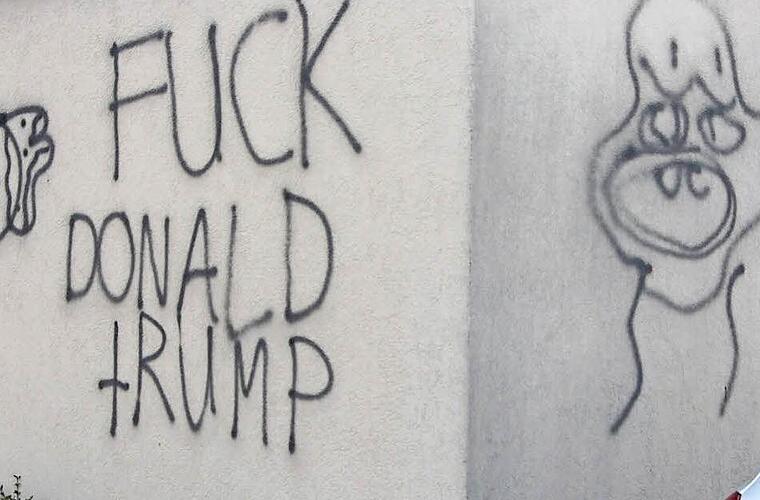 FUCK
DONALD
tRUMP